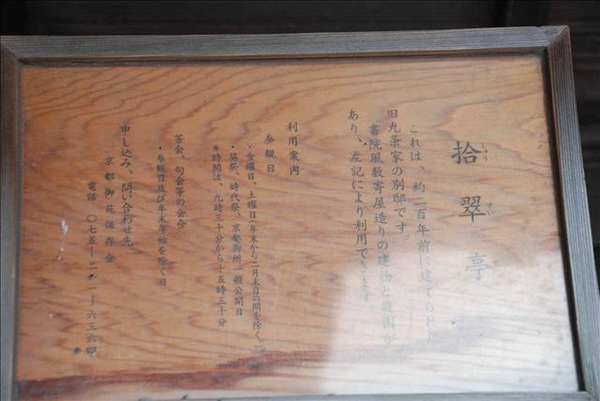 拾翠亭
しゅう すい
これは、約二百年前に建てられた
旧九条家の別邸です。
書院風数寄屋造りの建物と庭園が
あり、左記により利用できます。
利用案内
参観日
・金曜日、土曜日（年末から二月末日の間を除く。）
・葵祭、時代祭、京都御所一般公開日
＊時間は、九時三十分から十五時三十分
茶会、句会等の会合
・参観日及び年末年始を除く日
申し込み、問い合わせ先
京都御苑保存会
電話 〇七五―二 一―六三六四